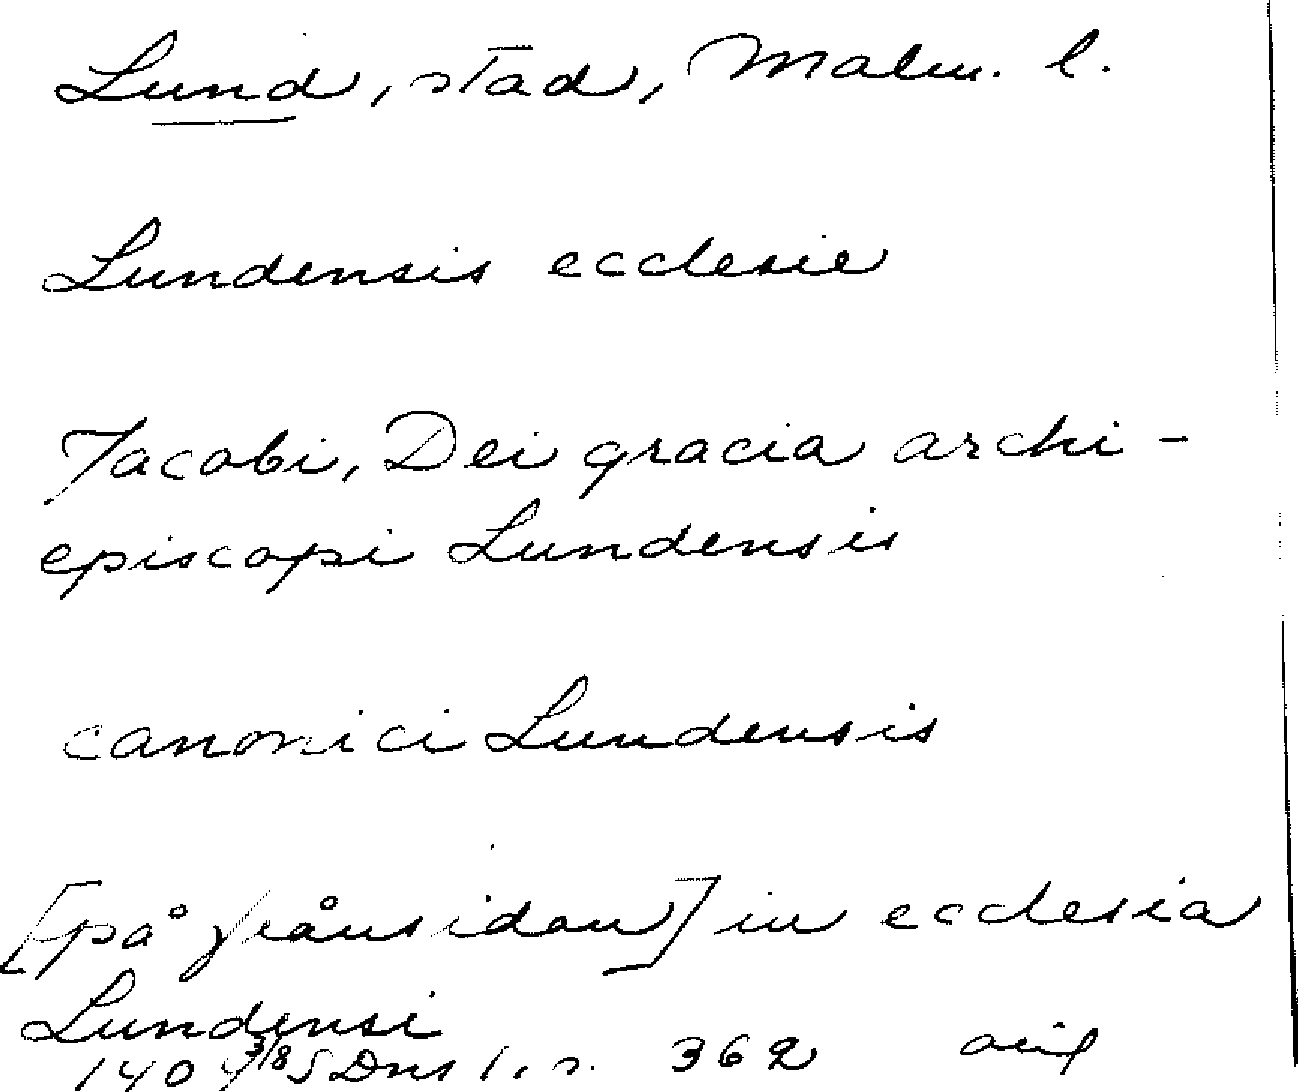 Lund, stad, Malm. l.
Lundensis ecclesie
Jacobi, Dei gracia archi-
episcopi Lundensis
canonici Lundensis
[på frånsidan] in ecclesia
Lundensi
140 3/8 SDns 1, s. 362